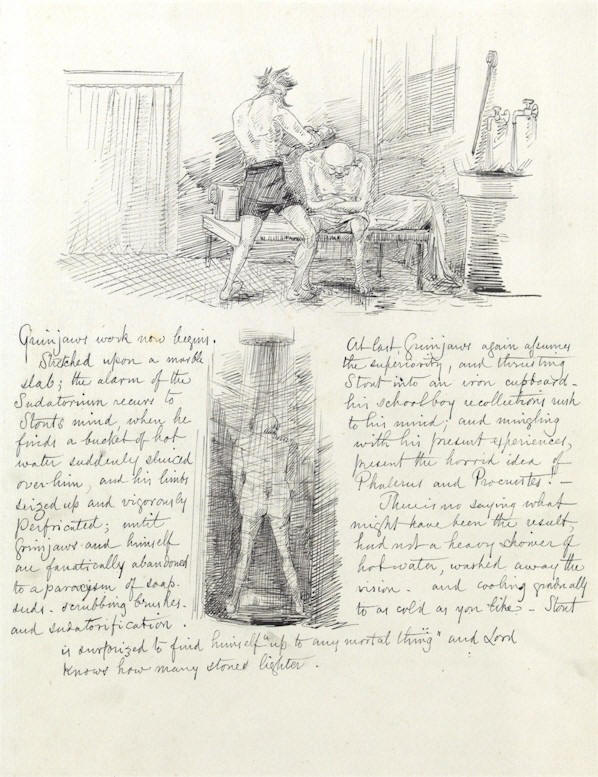 Grimjaws work now begins.
Stretched upon a marble
slab; the alarm of the
Sudatorium recurs to
Stout's mind, when he
finds a bucket of hot
water suddenly sluiced
over him, and his limbs
seized up and vigorously
perfricated; until
Grimjaws and himself
are fanatically abandoned
to a paroxysm of soap-
suds. scrubbing brushes.
and sudatorification.
At last, Grimjaws again assumes
the superiority, and thrusting
Stout into an iron cupboard-
his schoolboy recollections rush
to his mind; and mingling
with his present experiences,
present the horrid idea of
Phaleris and Procrustes! -
There is no saying what
might have been the result,
had not a heavy shower of
hot water, washed away the
vision. and cooling gradually
to as cold as you like - Stout
is surprized to find himself "up to any mortal thing" and Lord
knows how many stones lighter.